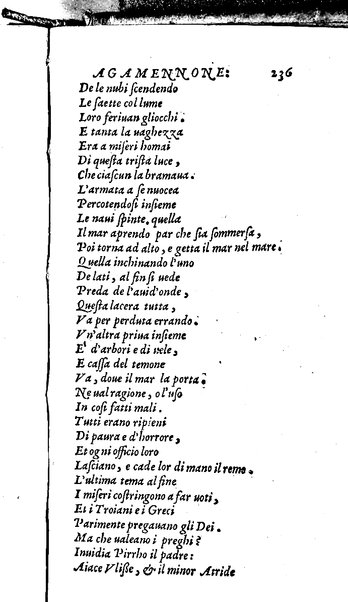 AGAMENNONE: 236
De le nubi scendendo
Le saette col lume
Loro feriuan gliocchi.
E tanta la uaghezza
Era a miseri homai
Di questa trista luce,
Che ciascun la bramaua.
L'armata a se nuocea
Percotendosi insieme
Le naui spinte. quella
Il mar aprendo par che sia sommersa,
Poi torna ad alto, e getta il mar nel mare.
Quella inchinando l'uno
De lati, al fin si uede
Preda de l'auid'onde,
Questa lacera tutta,
Va per perduta errando.
Vn'altra priua insieme
E' d'arbori e di uele,
E cassa del temone
Va, doue il mar la porta.
Ne ual ragione, o l'uso
In cosi fatti mali.
Tutti erano ripieni
Di paura e d'horrore,
Et ogni officio loro
Lasciano, e cade lor di mano il remo.
L'ultima tema al fine
I miseri costringono a far uoti,
Et i Troiani e i Greci
Parimente pregauano gli Dei.
Ma che ualeano i preghi?
Inuidia Pirrho il padre:
Aiace Vlisse, & il minor Atride